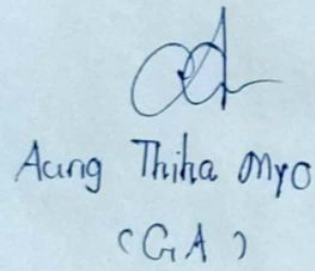 Aung Thiha Myo
(GA)